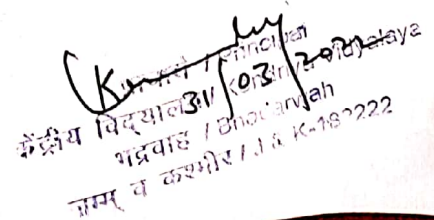 / Principal
केंद्रीय विद्यालय / Kendriya Vidyalaya
31/03/2022
भद्रवाह / Bhadarwah
जम्मू व कश्मीर / J & K-182222